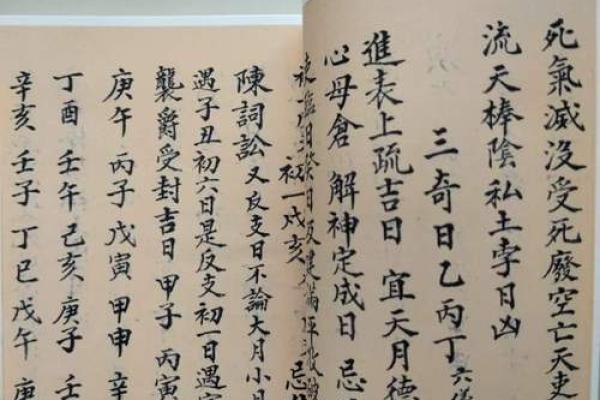 死氣滅没受死廢空亡天吏
流天棒陰私土孛日凶
三奇日乙丙丁六
進表上疏吉日 宜天月德
心母倉 解神定成日 忌
初一戌亥 忌
陳詞訟又反支日不論大月小月
遇子丑初六日是反支初一日遇寅
襲爵受封吉日 甲子 丙寅
庚午 丙子 戊寅 甲申 辛
丁酉 壬午 己亥 庚子 壬
辛亥 壬子 丁巳 戊午 庚